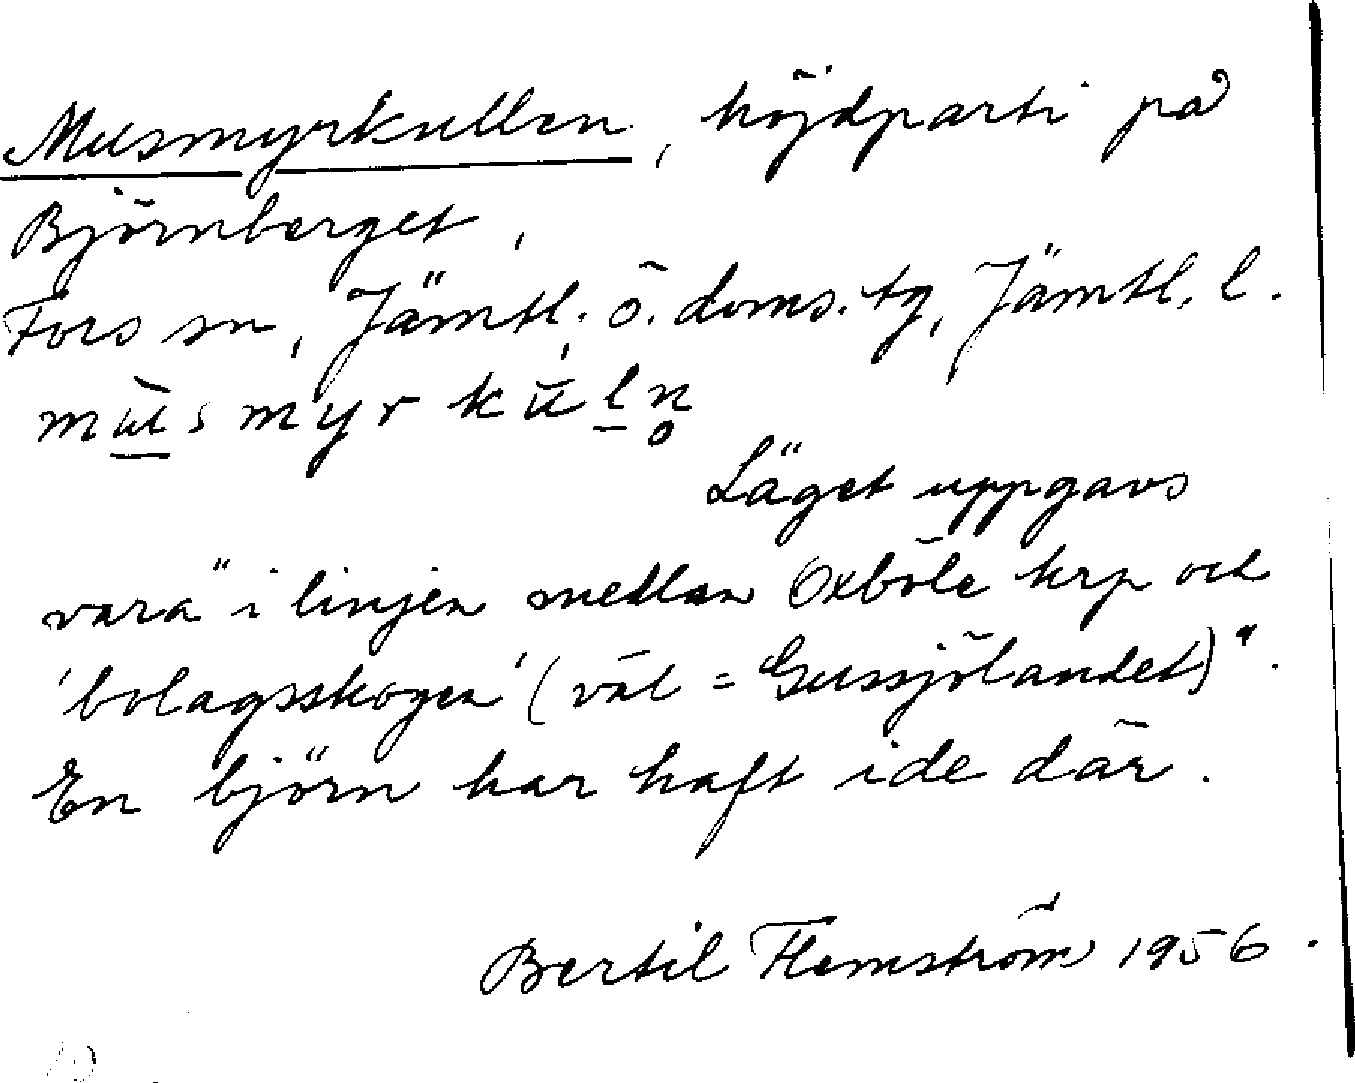 Musmyrkullen, höjdparti på
Björnberget,
Fors sn, Jämtl. ö. doms. tg, Jämtl. l.
mùsmyrkúln̥
Läget uppgavs
vara "i linjen mellan Oxböle krp och
'bolagsskogen' (väl = Gussjölandet)".
En björn har haft ide där.
Bertil Flemström 1956.